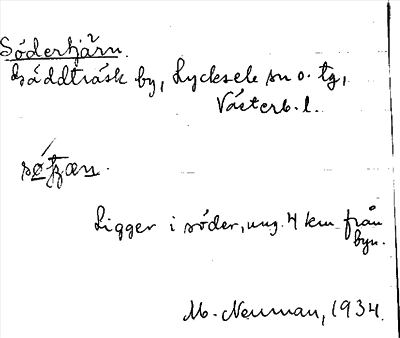 Södertjärn.
Gäddträsk by, Lycksele sn o. tg,
Västerb. l.
Ligger i söder, ung. 4 km från
byn.
M. Neuman, 1934.